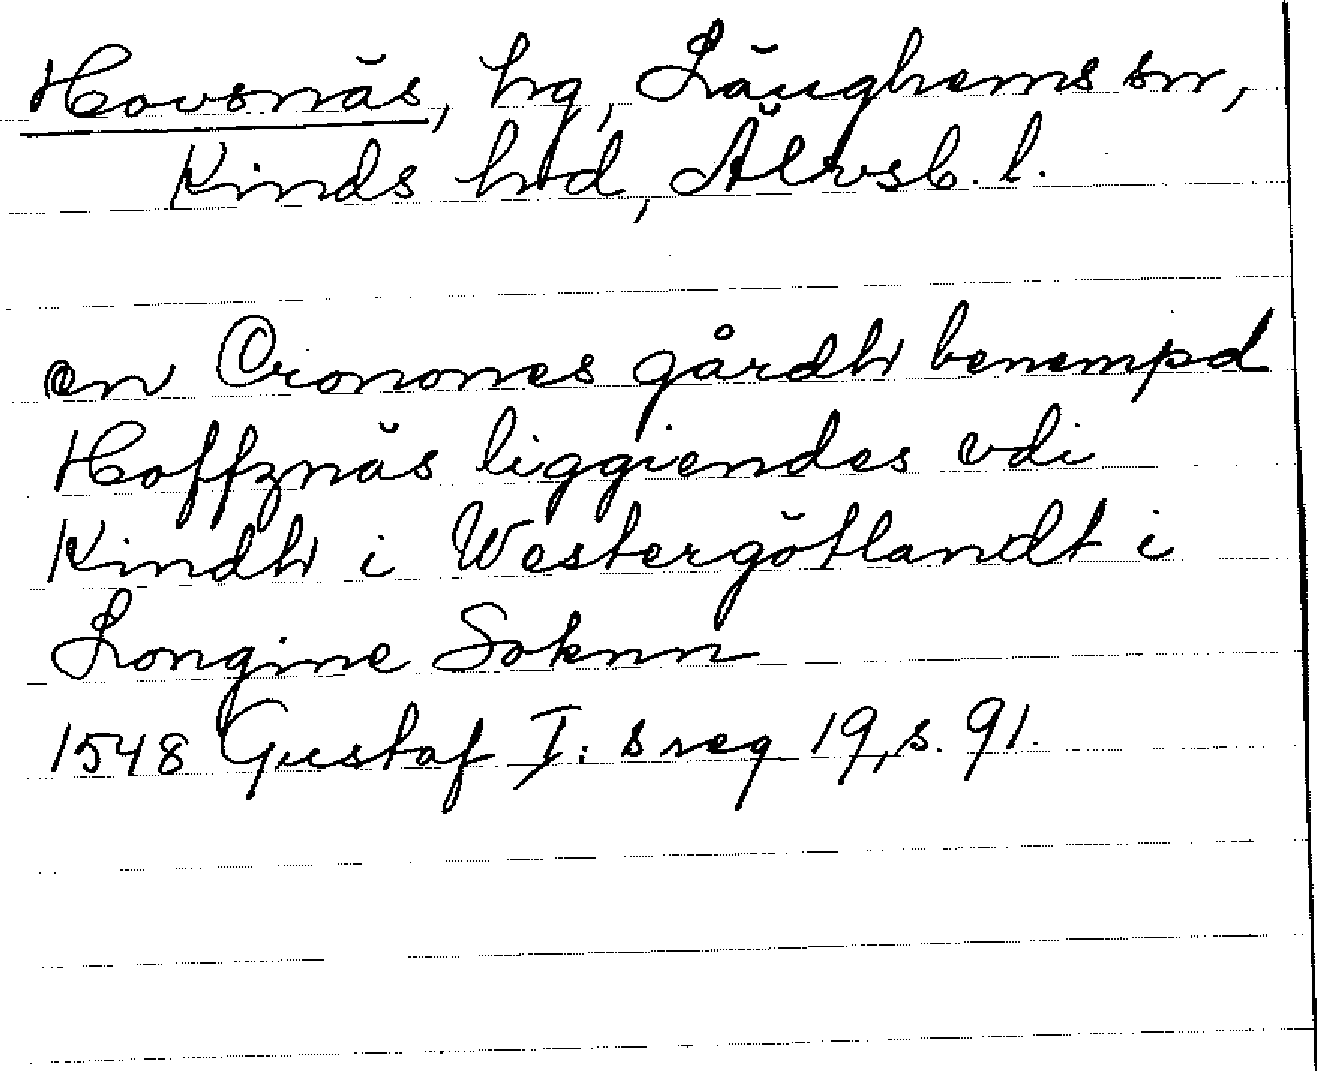 Hovsnäs, hg, Länghems sn,
Kinds hd, Älvsb. l.
en Cronones gårdh benempd
Hoffznäs liggiendes vdi
Kindh i Westergötlandt i
Longime Soknn
1548 Gustaf I:s reg 19, s. 91.